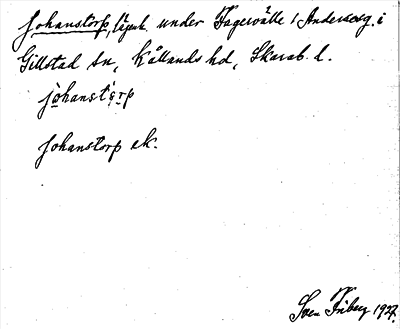 Johanstorp, lägenh. under Fagervälle 1 Andersasg. i
Gillstad sn, Kållands hd, Skarab. l.
johanstɷrp
Johanstorp ek.
Sven Friberg 1927.